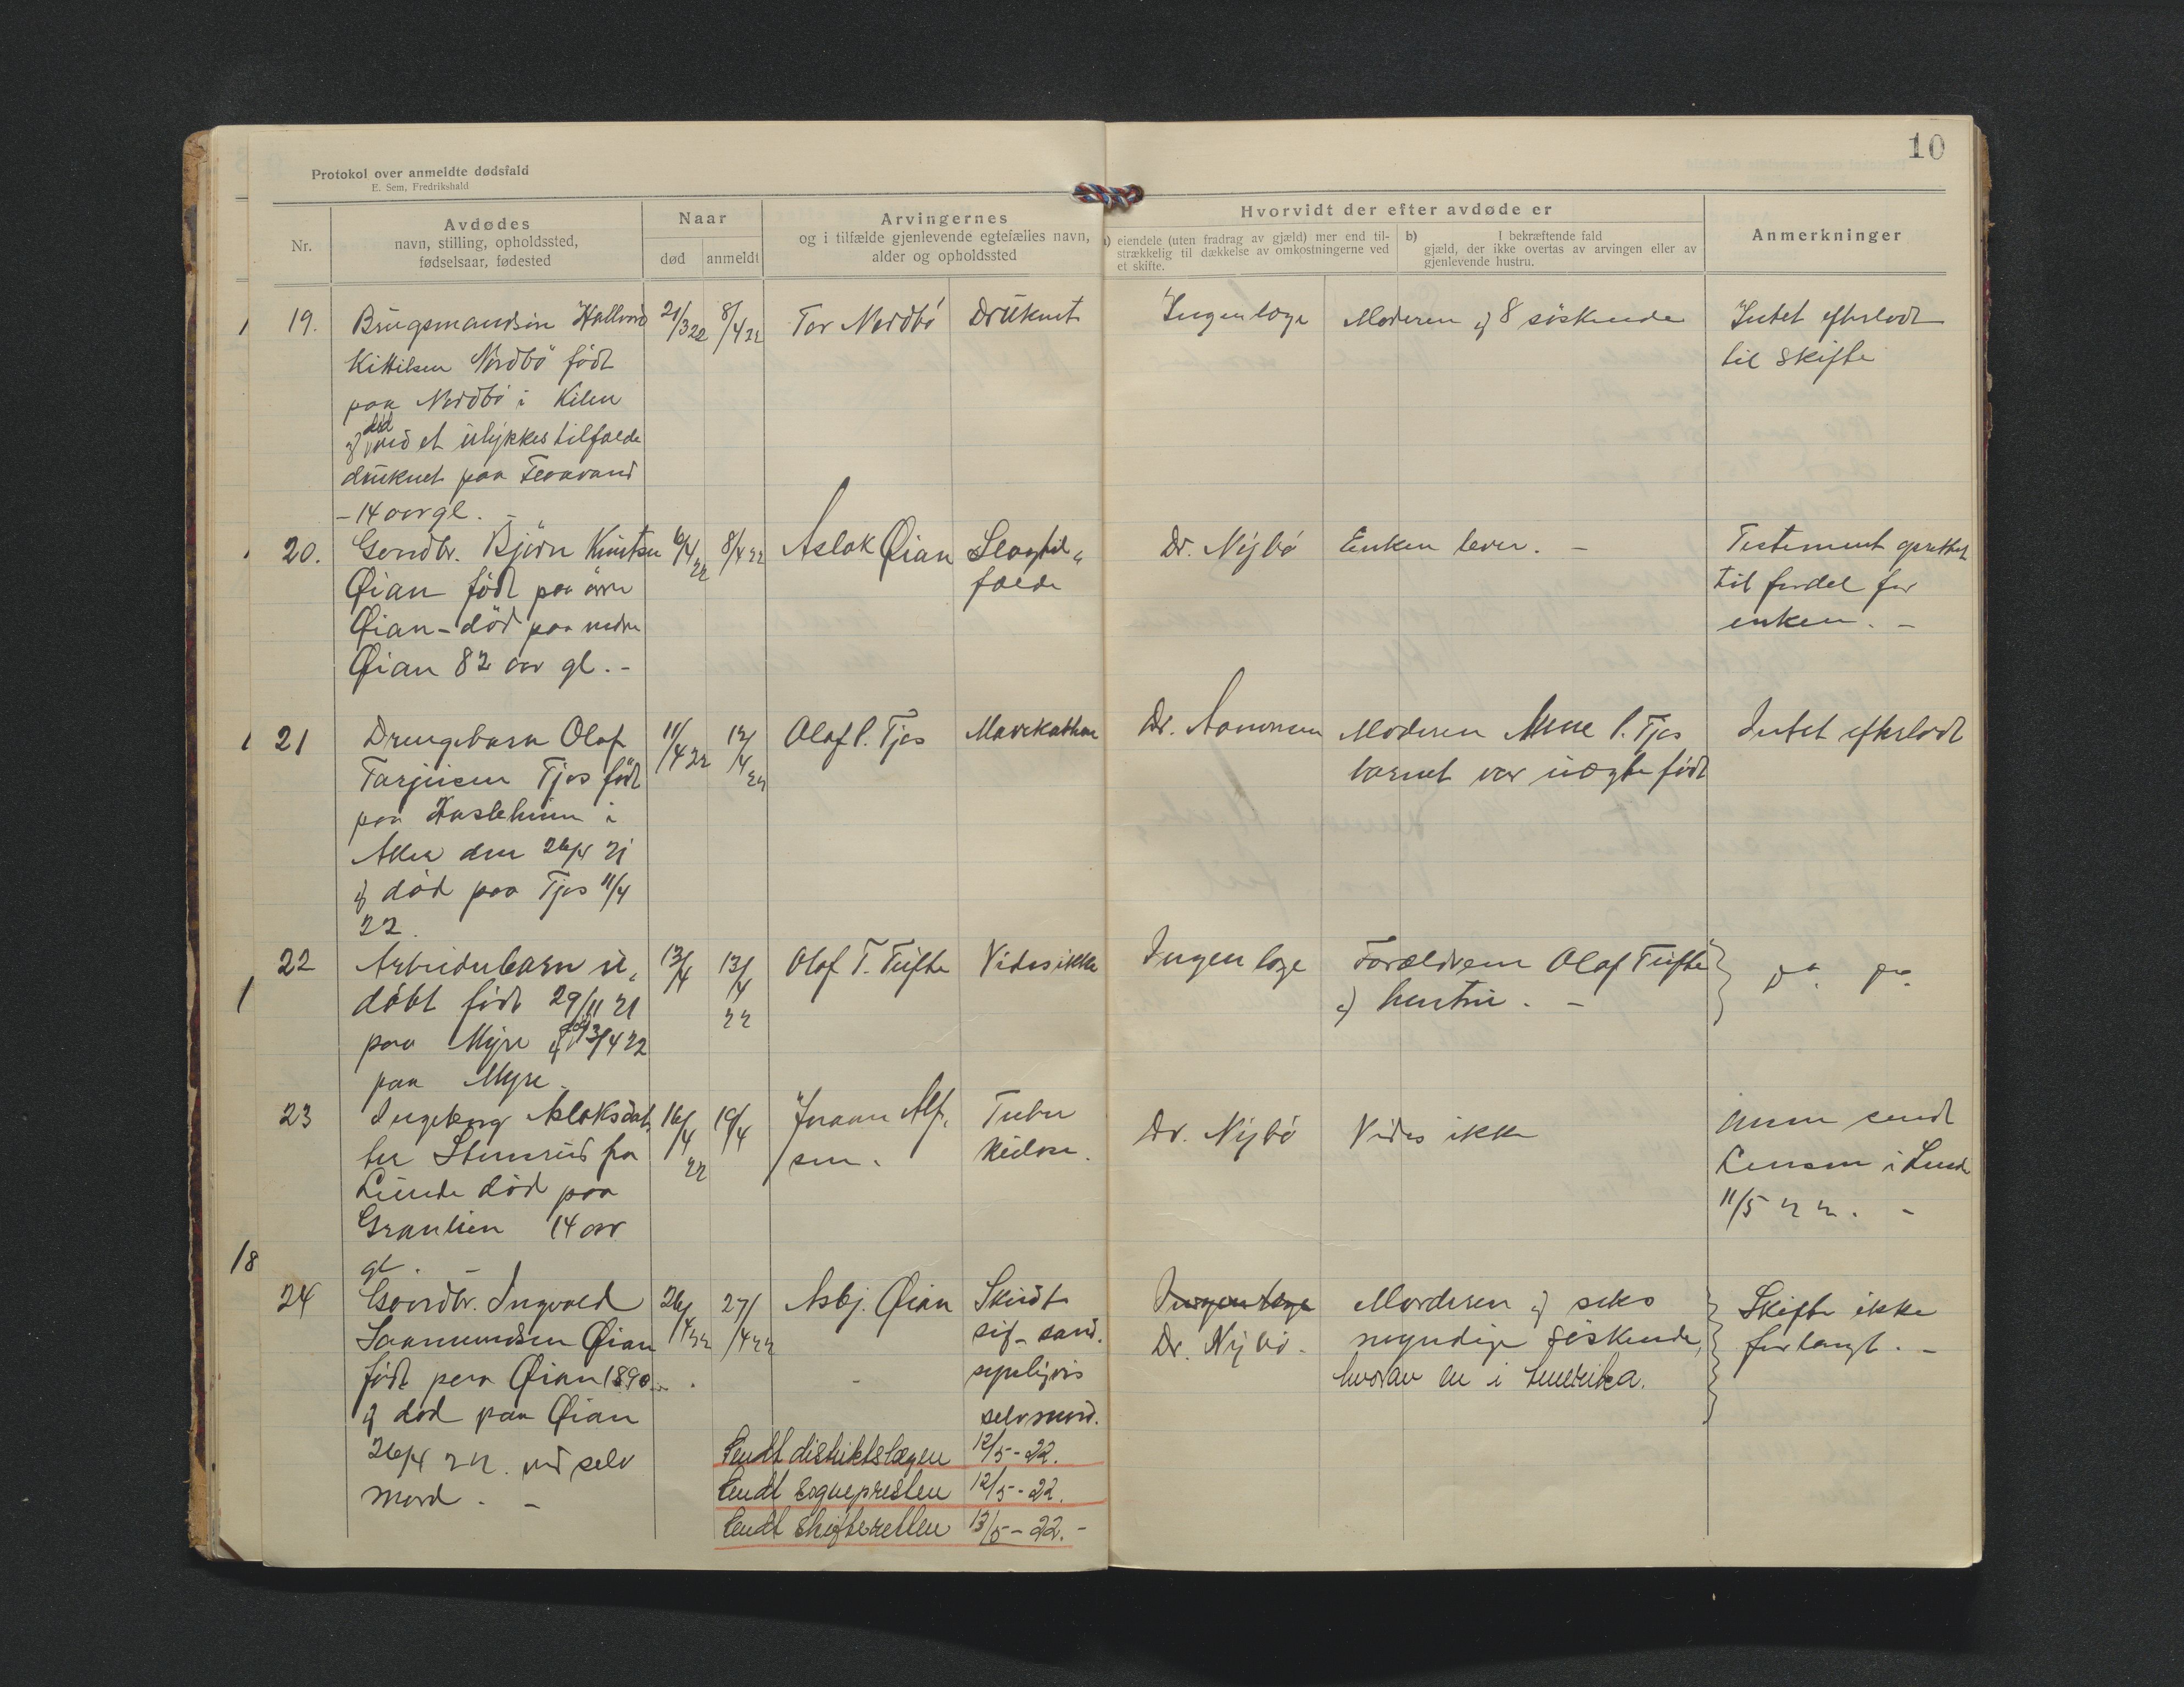 10
Protokol over anmeldte dødsfald
E. Sem, Fredrikshald
Nr.
Avdødes
navn, stilling, opholdssted,
fødselsaar, fødested
Naar
død
anmeldt
Arvingernes
og i tilfælde gjenlevende egtefælles navn,
alder og opholdssted
Hvorvidt der efter avdøde er
a) eiendele (uten fradrag av gjæld) mer end til-
strækkelig til dækkelse av omkostningerne ved
et skifte.
b) I bekræftende fald
gjæld, der ikke overtas av arvingen eller av
gjenlevende hustru.
Anmerkninger
19.
Brugsmandsøn Hallvord
Kittilsen Nordbö född
paa Nordbö i Kilen
og död ved et ulykkestilfælde
druknet paa
- 14 aar gl. -
21/3 22
8/4 22
Tor Nordbö
Druknet
Ingen læge
Moderen og 8 söskende
Intet efterladt
til skifte
20.
Gaardbr. Björn Knutsen
Øian född paa övre
Øian - död paa nedre
Øian 82 aar gl. -
6/4 22
8/4 22
Aslak Øian
Slagtil-
fælde
Dr. Nybö
Enken lever. -
Testament oprettet
til fordel for
enken. -
21
Drengebarn Olaf
Tarjeisen Tjos född
paa Hasleheim i
Aker den 26/4 21
og död paa Tjos 11/4
22.
11/4 22
12/4 22
Olaf P. Tjos
Mavekathar
Dr. Aanonsen
Moderen Anne P. Tjos
barnet var uægte född
Intet efterladt
22
Arbeiderbarn u-
döbt född 29/11 21
paa Myre og död 13/4 22
paa Myre -
13/4
13/4 22
Olaf T. Tufte
Vides ikke
Ingen læge
Forældrene Olaf Tufte
og hustru. -
23
Ingeborg Aslaksdat-
ter Stensrud fra
Lunde död paa
Granlien 14 aar
gl. -
16/4 22
19/4
Alf-
sen.
Tuber
kulose.
Dr. Nybö
Vides ikke
Anm sendt
Lensm i Lunde
11/5 22. -
18
24
Gaardbr. Ingvald
Saamundsen Øian
född paa Øian 1890
og död paa Øian
26/4 22. ved selv
mord. -
26/4 22
27/4 22
Asbj. Øian
Skudt
sig - sand-
synligvis
selvmord.
Ingen læge
Dr. Nybö -
Moderen og seks
myndige söskende,
hvorav en i Amerika.
Skifte ikke
forlangt. -
Sendt distriktslægen 12/5 - 22.
Sendt sognepresten 12/5 - 22.
Sendt skifteretten 13/5 - 22. -